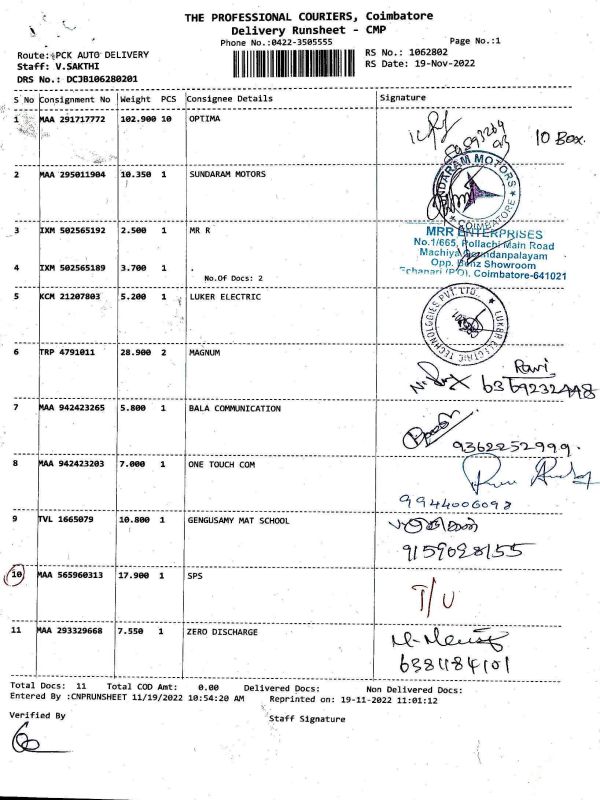 THE PROFESSIONAL COURIERS, Coimbatore
Delivery Runsheet - CMP
Phone No.:0422-3505555
Page No.:1
Route: PCK AUTO DELIVERY
RS No.: 1062802
Staff: V.SAKTHI
RS Date: 19-Nov-2022
DRS No.: DCJB106280201
S No Consignment No Weight PCS Consignee Details Signature
1 MAA 291717772 102.900 10 OPTIMA
10 Box.
2 MAA 295011904 10.350 1 SUNDARAM MOTORS
SUNDARAM MOTORS
COIMBATORE
3 IXM 502565192 2.500 1 MR R
MRR ENTERPRISES
No.1/665, Pollachi Main Road
Opp. Benz Showroom
Echanari (P.O), Coimbatore-641021
4 IXM 502565189 3.700 1 .
No.Of Docs: 2
5 KCM 21207803 5.200 1 LUKER ELECTRIC
LUKER ELECTRIC TECHNOLOGIES PVT LTD.
6 TRP 4791011 28.900 2 MAGNUM
Ravi
6369232448
7 MAA 942423265 5.800 1 BALA COMMUNICATION
9362252999.
8 MAA 942423203 7.000 1 ONE TOUCH COM
9944006098
9 TVL 1665079 10.800 1 GENGUSAMY MAT SCHOOL
9159098155
10 MAA 565960313 17.900 1 SPS
T/U
11 MAA 293329668 7.550 1 ZERO DISCHARGE
6381184101
Total Docs: 11 Total COD Amt: 0.00 Delivered Docs: Non Delivered Docs:
Entered By :CNPRUNSHEET 11/19/2022 10:54:20 AM Reprinted on: 19-11-2022 11:01:12
Verified By
Staff Signature